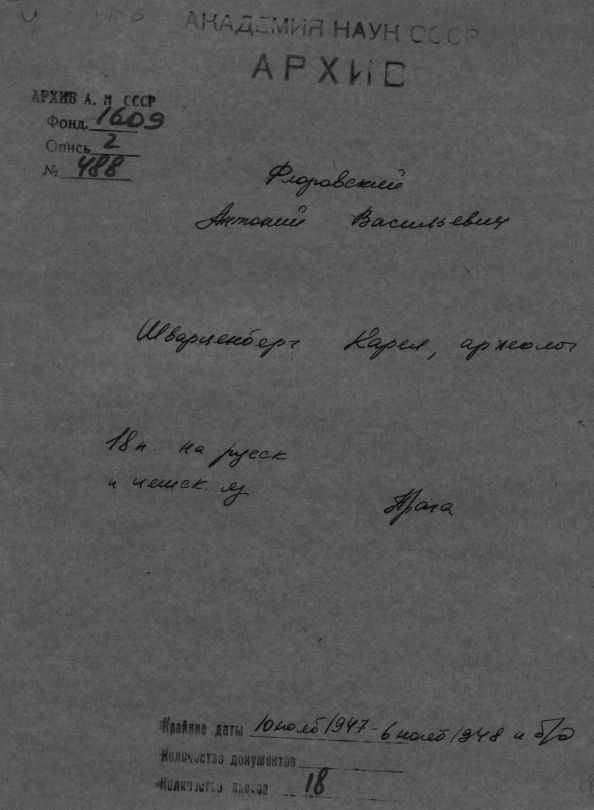 АКАДЕМИЯ НАУК СССР
АРХИВ
АРХИВ А. Н СССР
Фонд. 1609
Опись 2
№ 488
Флоровский
Антоний Васильевич
Шварценберг Карел, археолог
18п. на русск
и чешск. яз
Прага
Крайние даты 10 нояб 1947 - 6 нояб 1948 и б/д
Количество документов
Количество листов 18